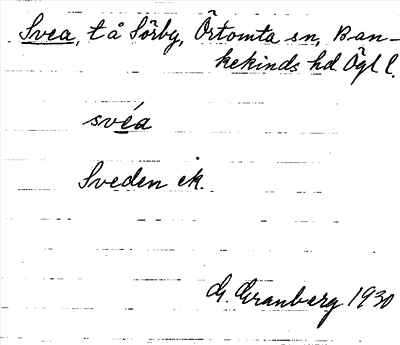 Svea, t å Sörby, Örtomta sn, Ban-
kekinds hd. Ögl l.
svéa
Sveden ek.
G. Granberg 1930